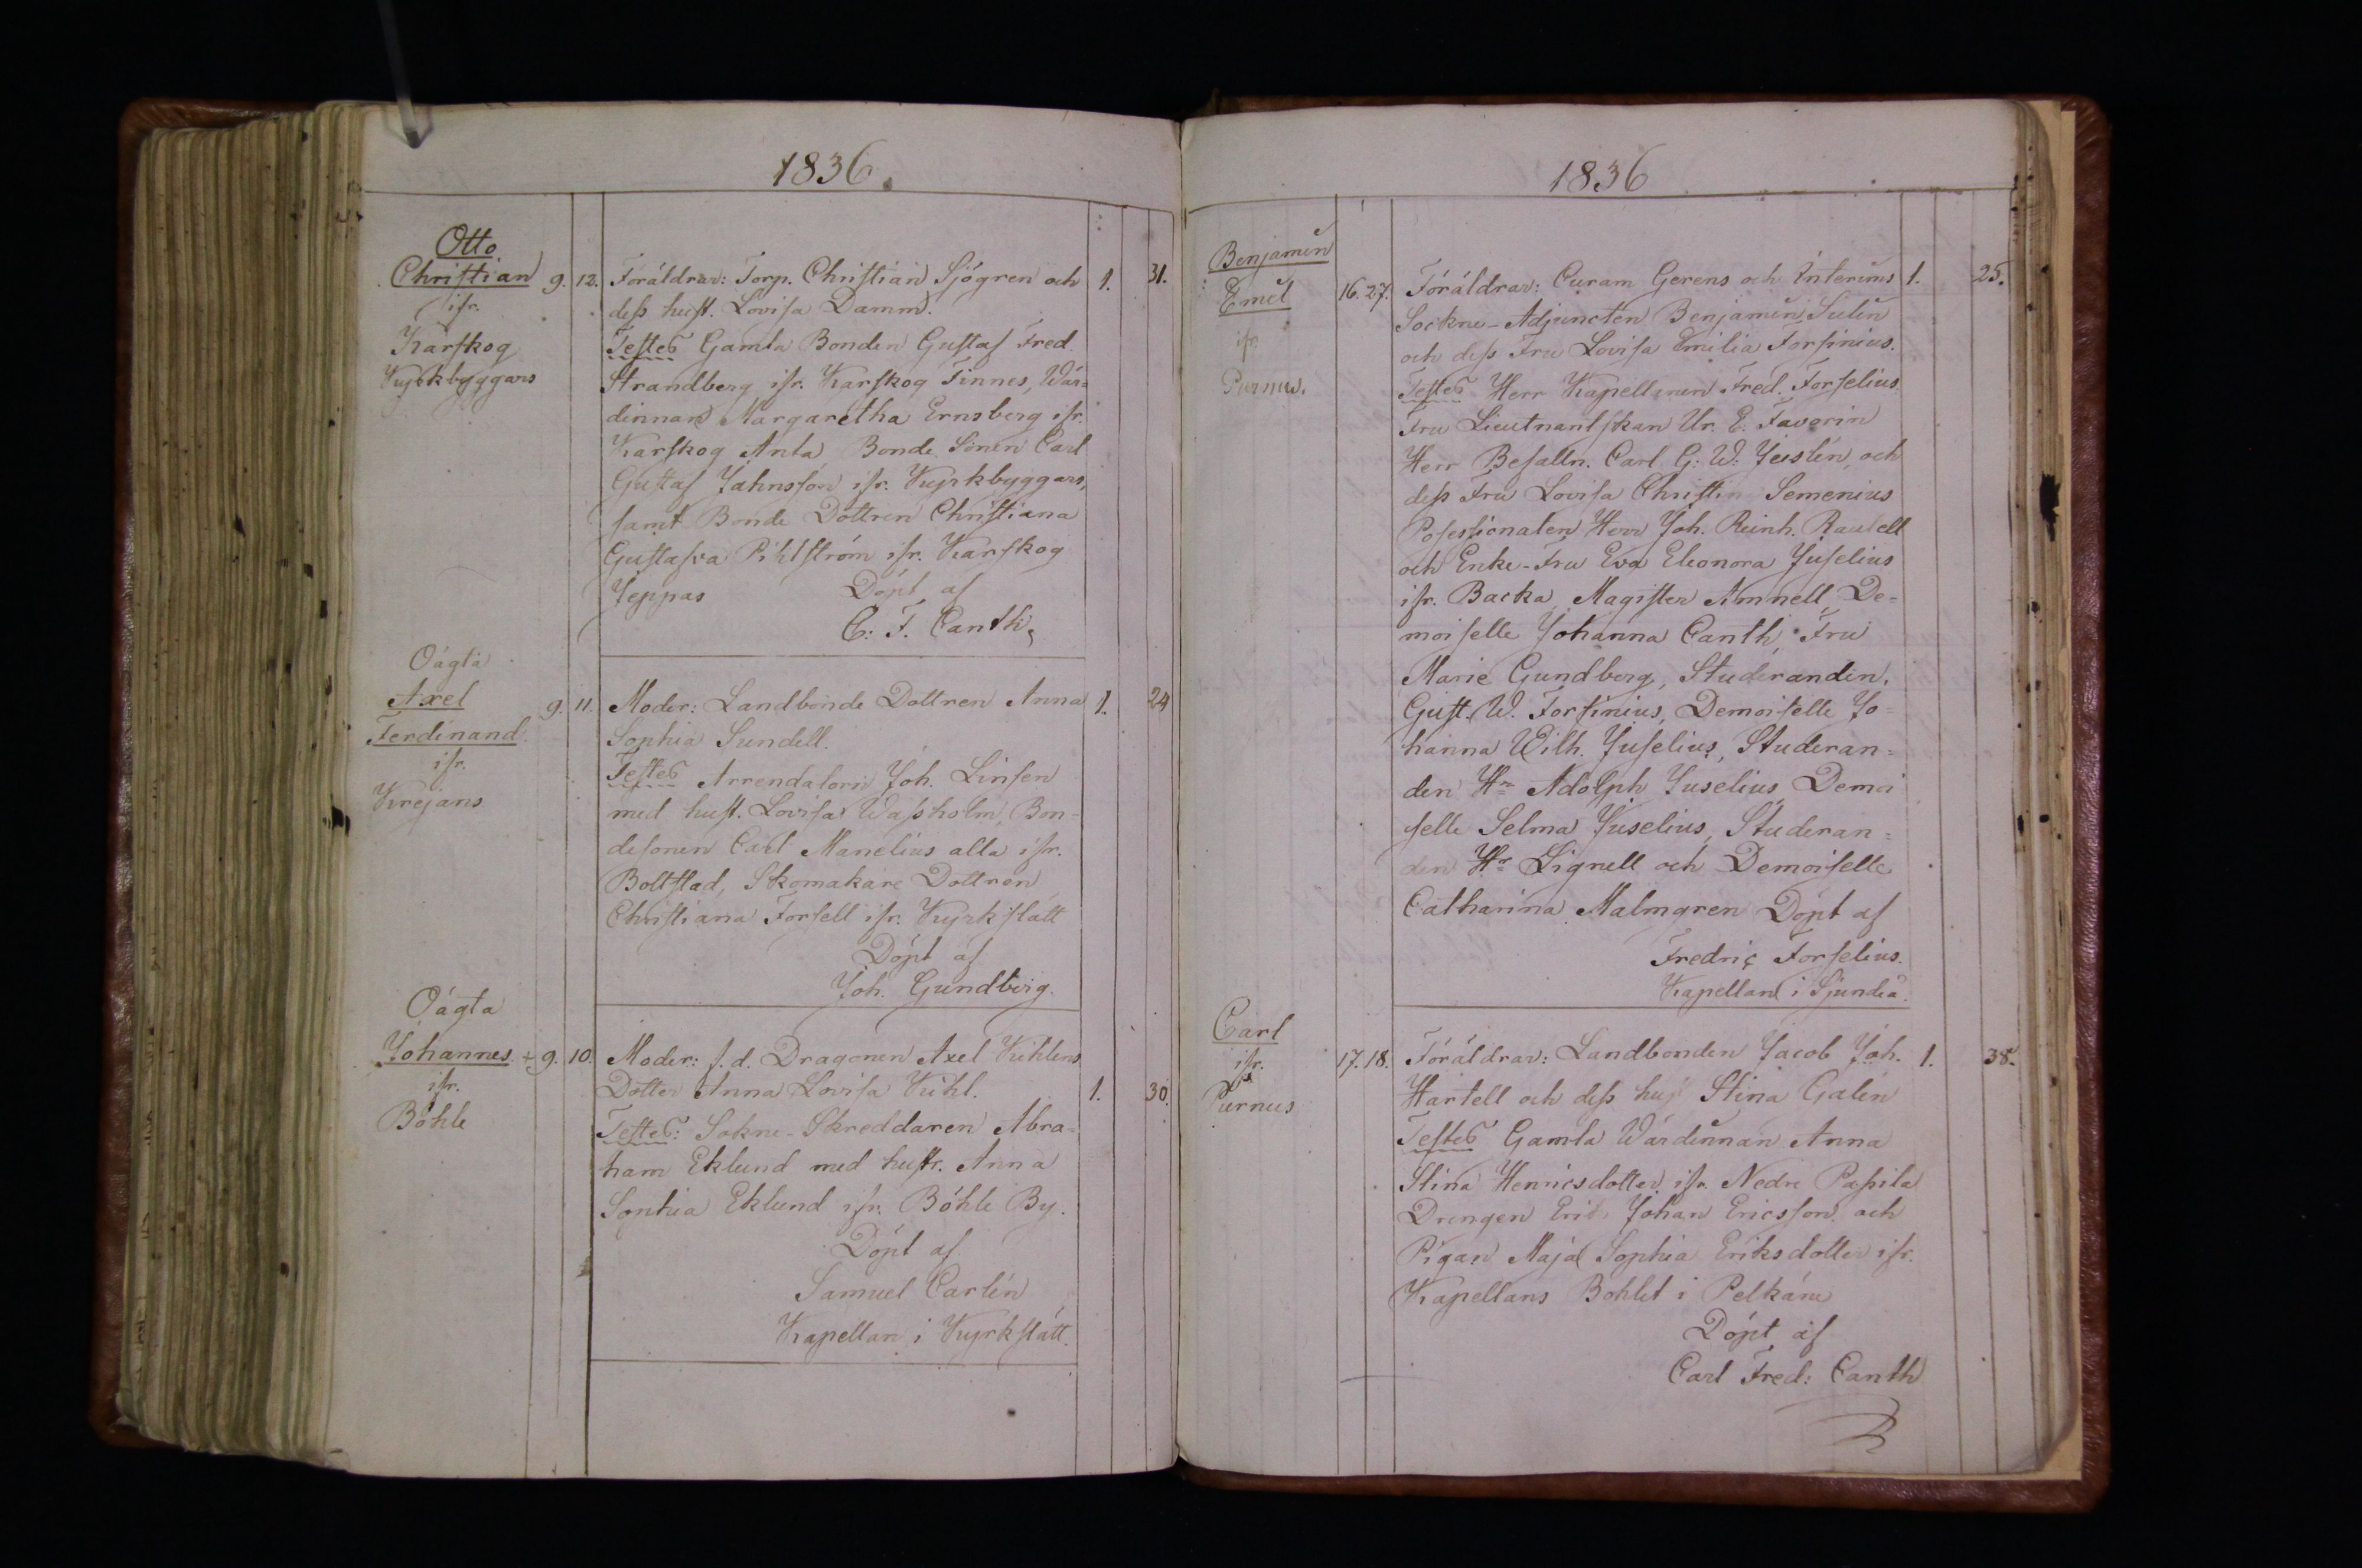 1836.
Otto
Christian 9. 12. Föräldrar: Torp. Christian Sjögren och 1. 31.
ifr. dess hust. Lovisa Damm.
Karskog Testes Gamla Bonden Gustaf Fred
Kyrkbyggars Strandberg ifr. Karskog Finnes, Wär-
dinnan Margaretha Ernsberg ifr.
Karskog Anta Bonde Sonen Carl
Gustaf Jahnsson ifr. Kyrkbyggars,
samt Bonde Dottren Christiana
Gustafva Pihlström ifr. Karskog
Jeppas Döpt af
C: F. Canth
Oägta
Axel 9. 11. Moder: Landbonde Dottren Anna 1. 24
Ferdinand Sophia Sundell.
ifr. Testes Arrendatorn Joh. Linsen
Krejans med hust. Lovisa Wassholm, Bon-
desonen Carl Manelius alla ifr.
Boltstad, Skomakare Dottren
Christiana Forsell ifr. Kyrkslätt
Döpt af
Joh. Gundberg.
Oägta
Johannes + 9. 10. Moder: f. d. Dragonen Axel Kihlens
ifr. Dotter Anna Lovisa Kihl. 1. 30.
Böhle Testes: Sokne-Skreddaren Abra-
ham Eklund med hustr. Anna
Sophia Eklund ifr. Böhle By.
Döpt af
Samuel Carlén
Kapellan i Kyrkslätt.
1836
Benjamin
Emil 16. 27. Föräldrar: Curam Gerens och Interims 1. 25.
ifr. Sockne-Adjuncten Benjamin Sulin
Purnus. och dess Fru Lovisa Emilia Forsinius.
Testes Herr Kapellanen Fred. Forselius
Fru Lieutnantskan Ur. E. Favorin
Herr Befalln. Carl G: W: Jeislén, och
dess Fru Lovisa Christin Semenius
Posessionaten Herr Joh. Reinh. Rautell
och Enke-Fru Eva Eleonora Juselius
ifr. Backa Magister Amnell, De-
moiselle Johanna Canth, Fru
Marie Gundberg, Studeranden,
Gust. W. Forsinius, Demoiselle Jo-
hanna Wilh. Juselius, Studeran-
den Hr Adolph Juselius Demoi
selle Selma Juselius, Studeran-
den Hr Lignell och Demoiselle
Catharina Malmgren Döpt af
Fredric Forselius.
Kapellan i Sjundeå.
Carl
ifr. 17. 18. Föräldrar: Landbonden Jacob Joh. 1. 38.
Purnus Hartell och dess hust Stina Galén
Testes Gamla Wärdinnan Anna
Stina Henricsdotter ifr. Nedre Passila
Drengen Eric Johan Ericsson och
Pigan Maja Sophia Eriksdotter ifr.
Kapellans Bohlet i Pelkäne
Döpt af
Carl Fred: Canth